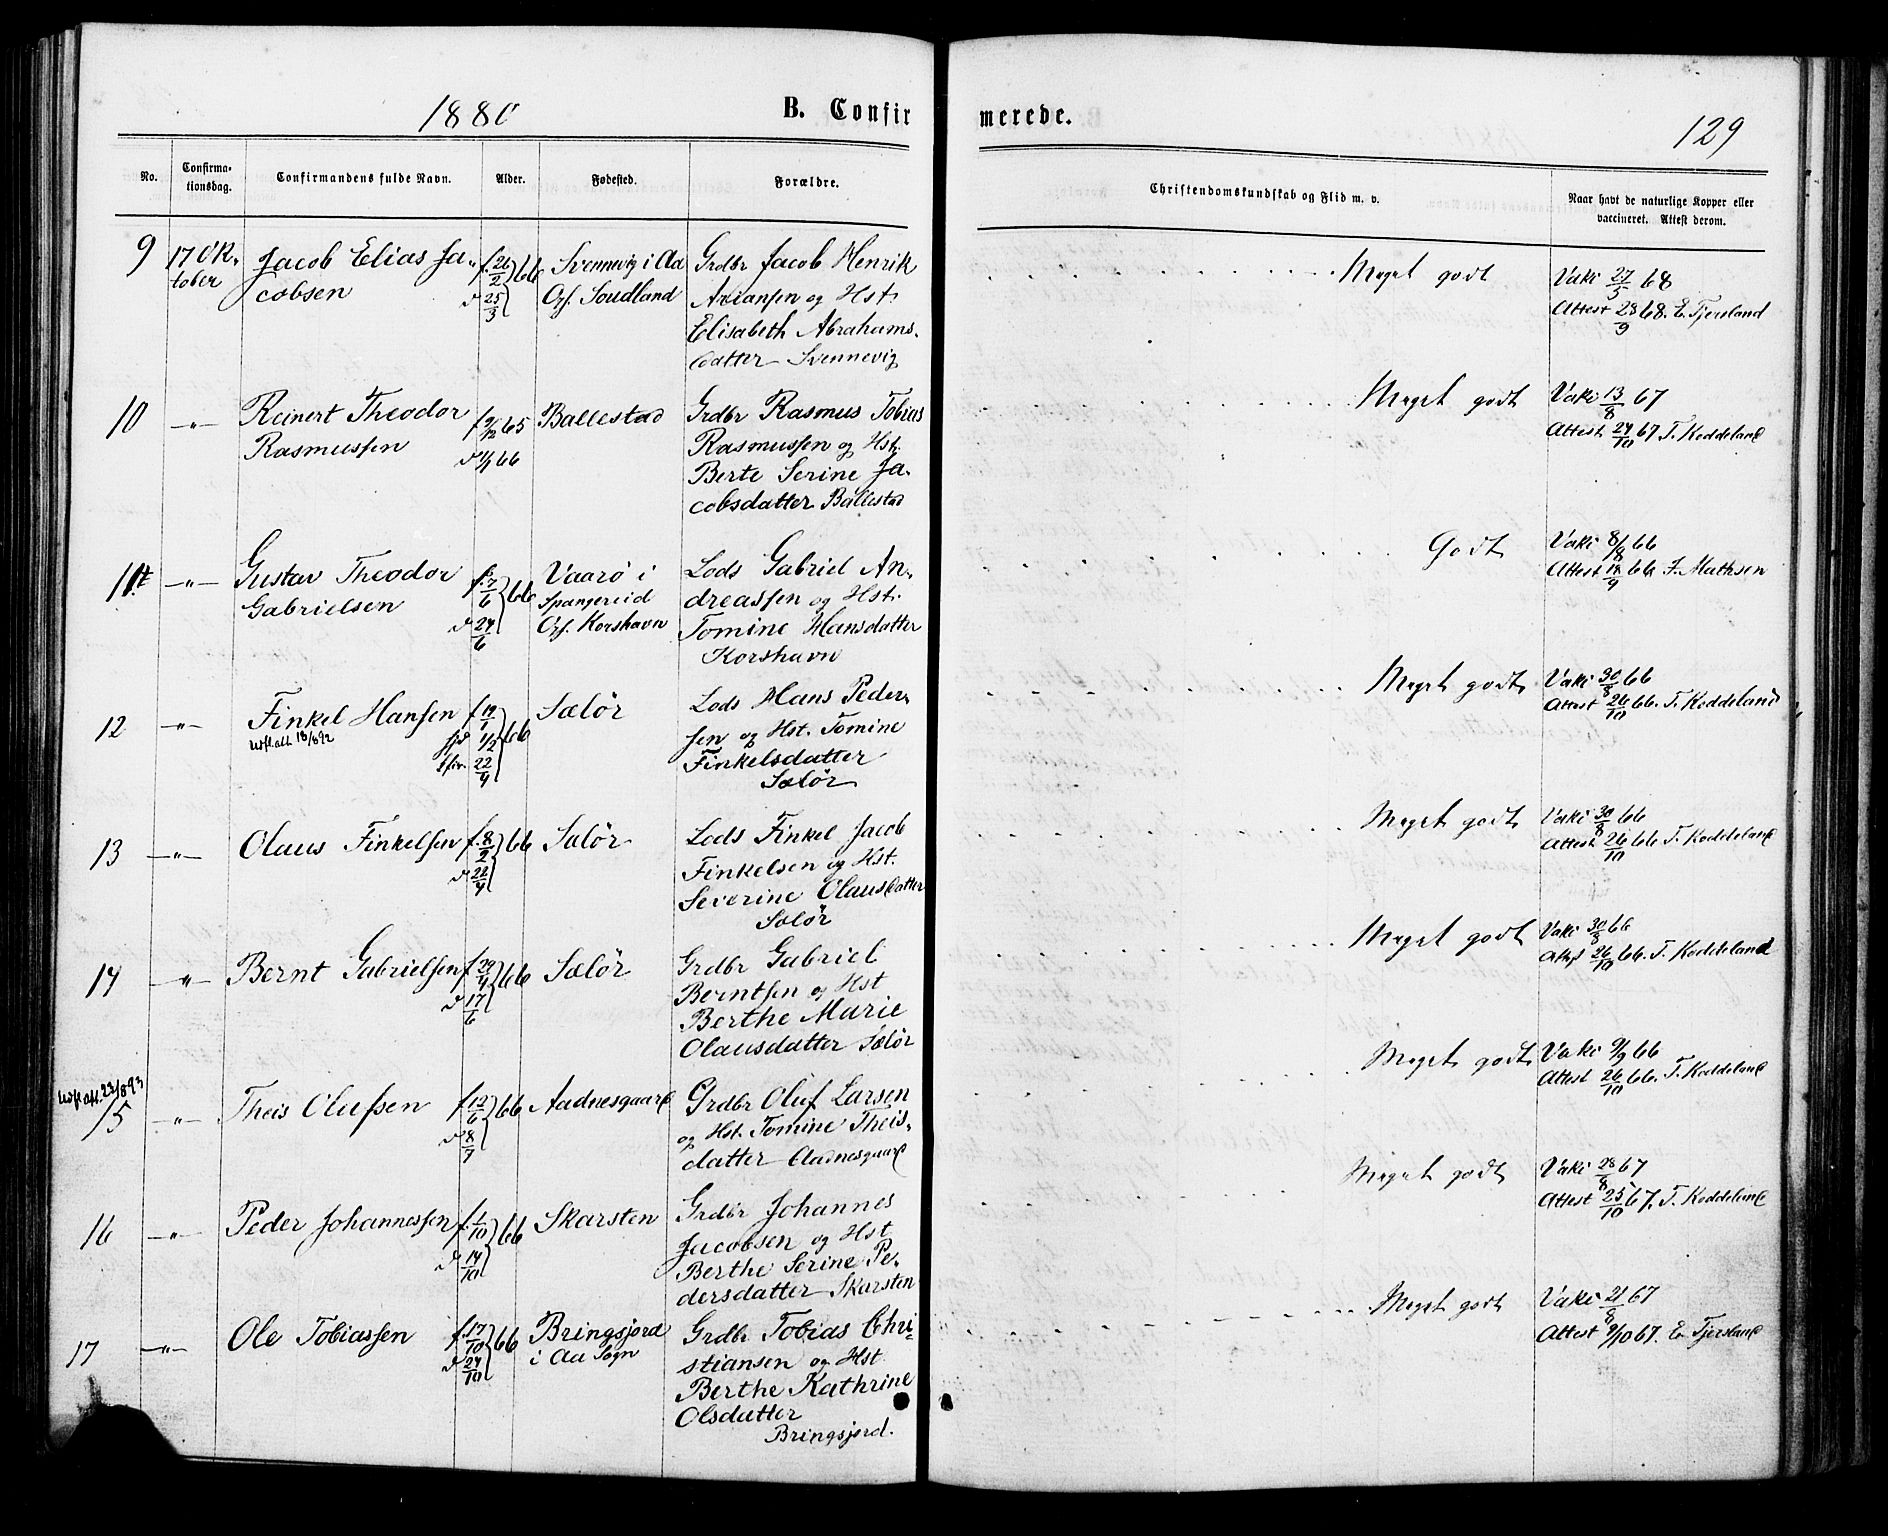 1880
B. Confir
merede.
129
No.
Confirma-
tionsdag.
Confirmandens fulde Navn.
Alder.
Fødested.
Forældre.
Christendomskundskab og Flid m. v.
Naar havt de naturlige Kopper eller
vaccineret. Attest derom.
9
17 Ok-
tober
Jacob Elias Ja-
cobsen
f. 26/2 66
d 25/3
Svennevig i Aa
Opf. Soudland
Grdbr Jacob Henrik
Ariansen og Hst.
Elisabeth Abrahams-
datter Svennevig
Meget godt
Vaki 27/5 68
Attest 28/9 68. E. Tjersland
10
—"—
Reinert Theodor
Rasmussen
f 9/12 65
d 1/1 66
Ballestad
Grdbr Rasmus Tobias
Rasmussen og Hst.
Berte Serine Ja-
cobsdatter Ballestad
Meget godt
Vaki 13/8 67
Attest 24/10 67 T. Koddeland
11
—"—
Gustav Theodor
Gabrielsen
f. 7/6 66
d 24/6
Vaarö i
Spangereid
Opf. Korshavn
Lods Gabriel An-
dreassen og Hst.
Tomine Hansdatter
Korshavn
Godt
Vaki 8/8 66
Attest 18/9 66 J. Mathsen
12
—"—
Finkel Hansen
Udst. att. 18/8 92
f. 19/1 66
hjd 1/2
22/4
Sælör
Lods Hans Peder-
sen og Hst. Tomine
Finkelsdatter
Sælör
Meget godt
Vaki 30/8 66
Attest 26/10 66. T. Koddeland
13
—"—
Olaus Finkelsen
f. 8/2 66
d 22/4
Sælör
Lods Finkel Jacob
Finkelsen og Hst.
Severine Olausdatter
Sælör
Meget godt
Vaki 30/8 66
Attest 26/10 66 T. Koddeland
14
—"—
Bernt Gabrielsen
f. 29/4 66
d 17/6
Sælör
Grdbr Gabriel
Berntsen og Hst
Berthe Marie
Olausdatter Sælör
Meget godt
Vaki 30/8 66
Att 26/10 66. T. Koddeland
Udst. att. 23/8 93
15
—"—
Theis Olufsen
f. 12/6 66
d 8/7
Aadnesgaard
Grdbr Oluf Larsen
og Hst. Tomine Theis-
datter Aadnesgaard
Meget godt
Vaki 9/9 66
Attest 26/10 66. T. Koddeland
16
—"—
Peder Johannessen
f. 1/10 66
d 14/10
Skarsten
Grdbr Johannes
Jacobsen og Hst
Berthe Serine Pe-
dersdatter Skarsten
Meget godt
Vaki 28/8 67
Attest 25/10 67. T. Koddeland
17
—"—
Ole Tobiassen
f. 17/10 66
d 24/10
Bringsjord
i Aa Sogn
Grdbr Tobias Chri-
stiansen og Hst
Berthe Kathrine
Olsdatter
Bringsjord.
Meget godt
Vaki 21/8 67
Attest 9/10 67. E. Tjersland